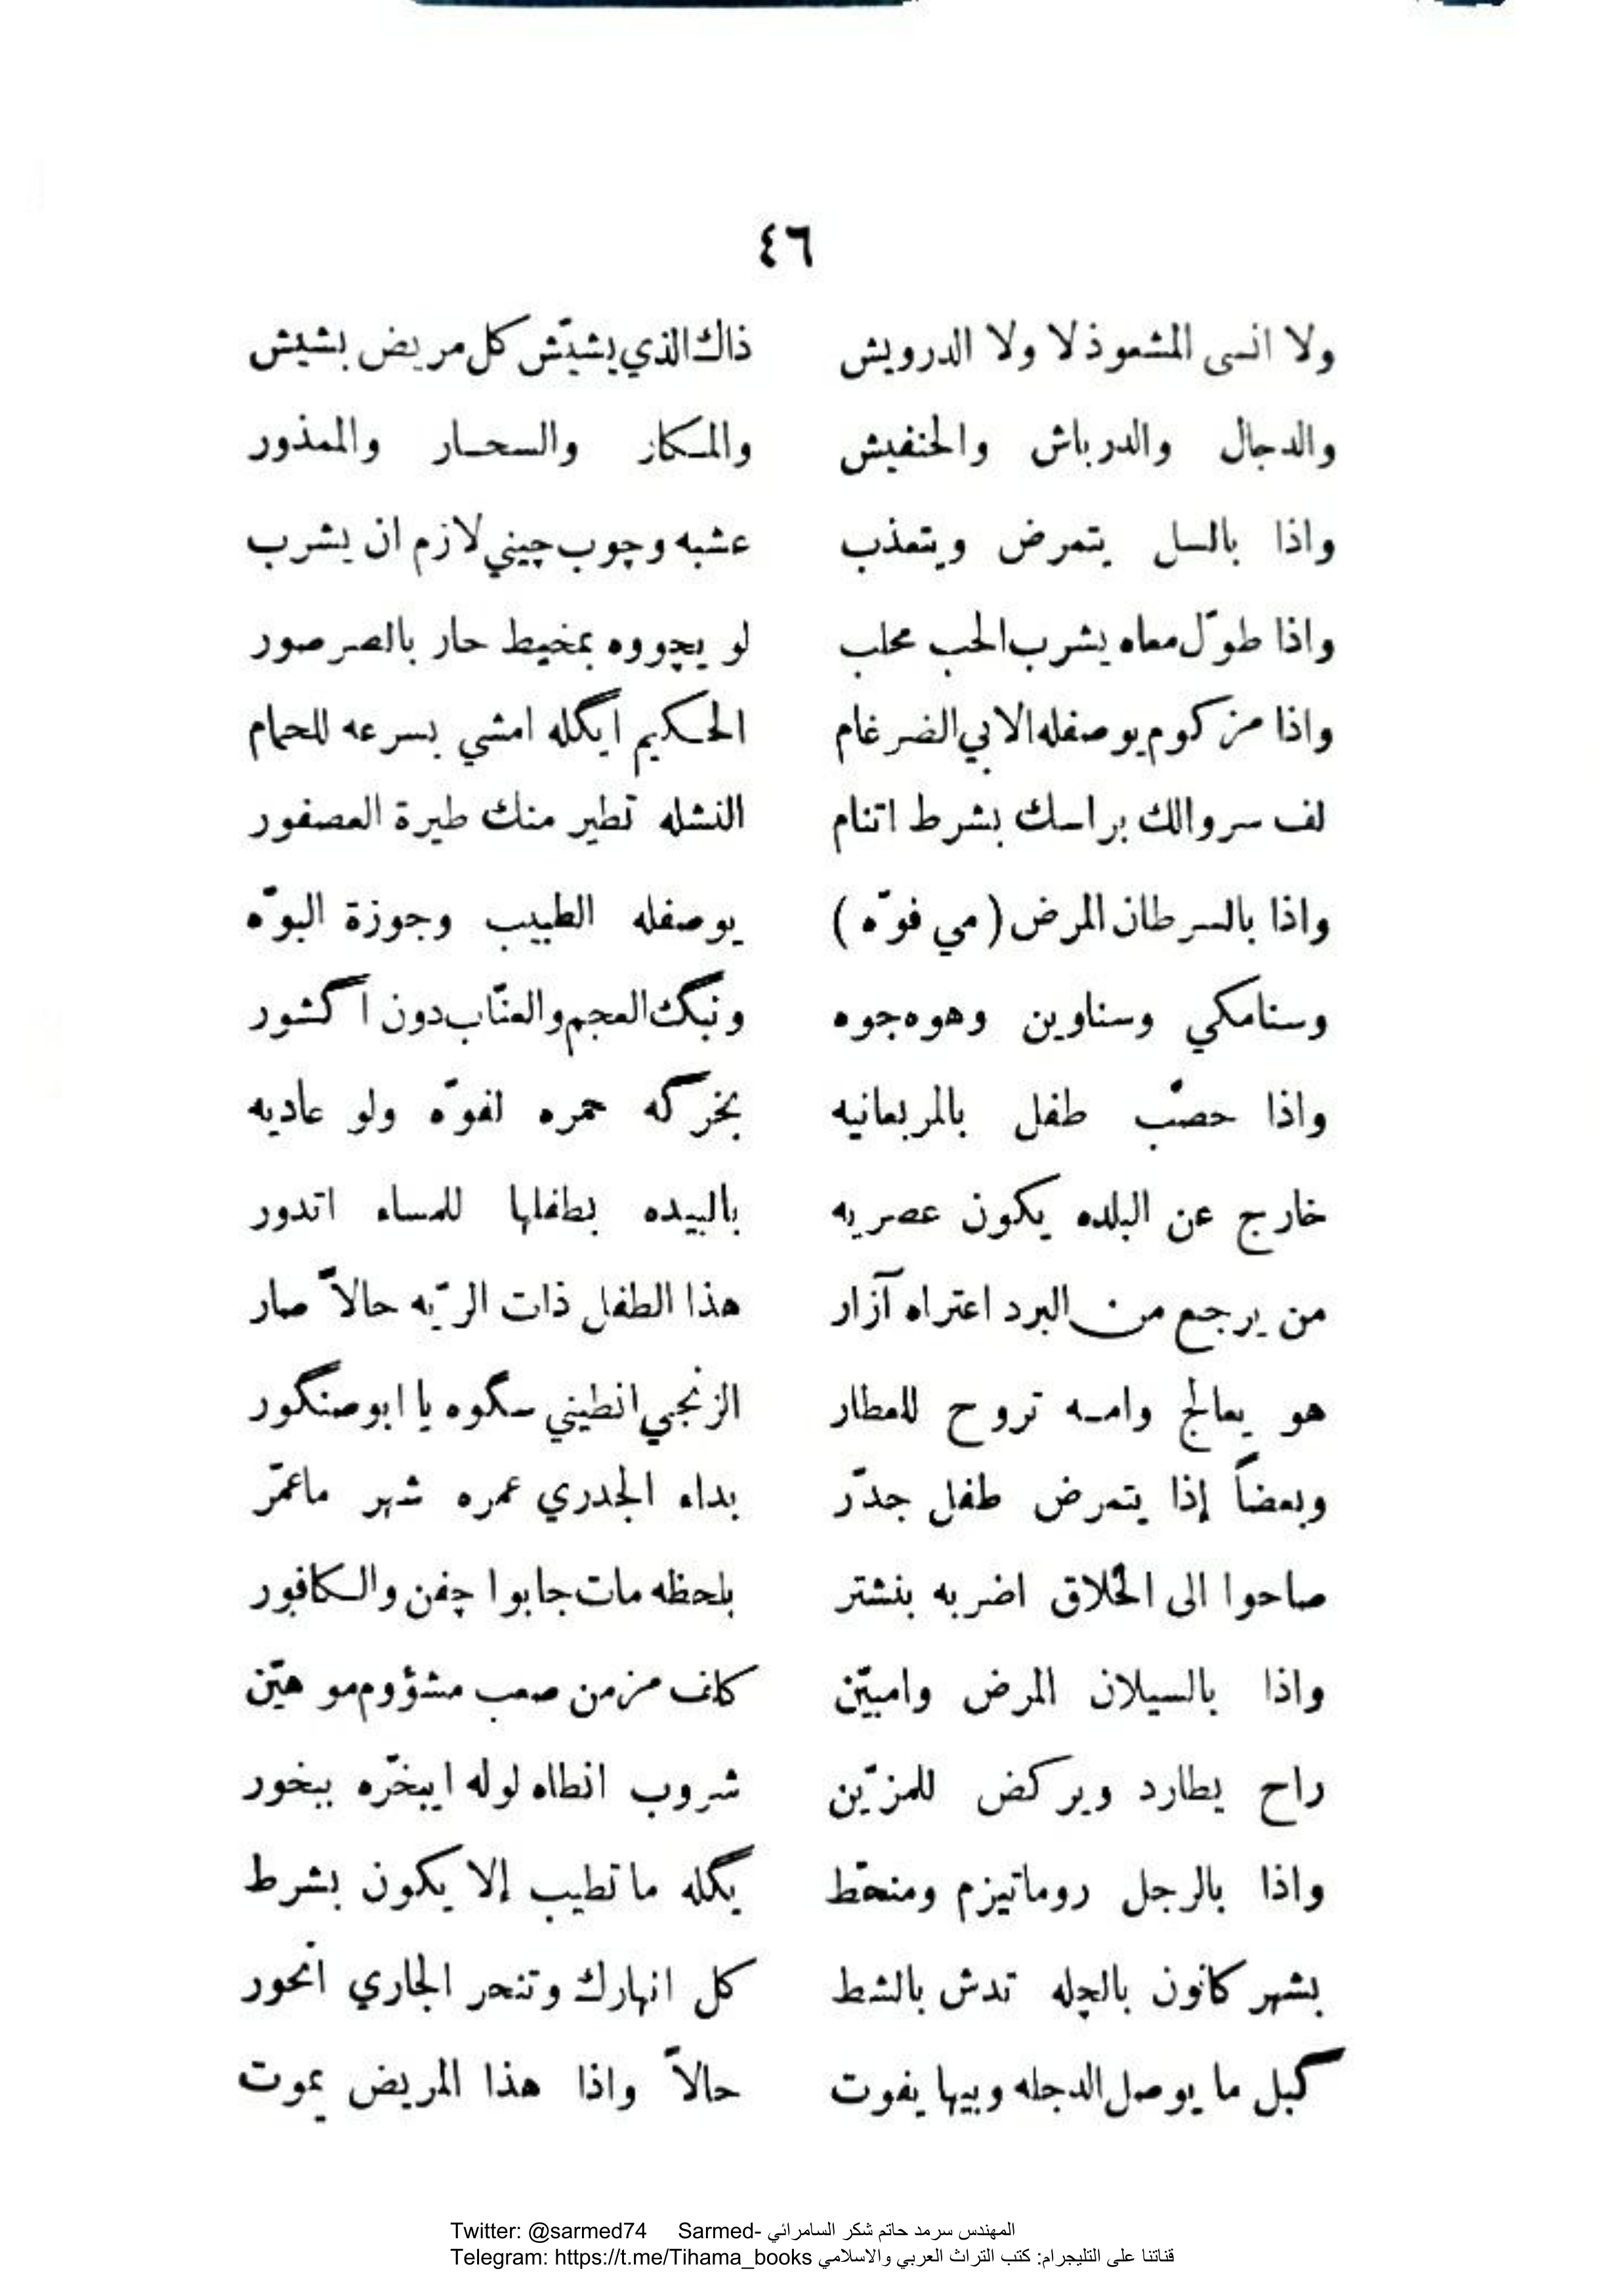 ٤٦
ولا انسى المشعوذ لا ولا الدرويش ذاك الذي يشيّش كل مريض بشيش
والدجال والدرباش والحنفيش والمكار والسحار والمذور
واذا بالسل يتمرض ويتعذب عشبه وچوب چيني لازم ان يشرب
واذا طوّل معاه يشرب الحب محلب لو يچووه بمخيط حار بالصرصور
واذا مزكوم يوصفله الابي الضرغام الحكيم ايگله امشي بسرعه للحمام
لف سروالك براسك بشرط اتنام النشله تطير منك طيرة العصفور
واذا بالسرطان المرض ( مي فوّه ) يوصفله الطبيب وجوزة البوّه
وسنامكي وسناوين وهوه جوه ونبگ العجم والعنّاب دون اگشور
واذا حصّب طفل بالمربعانيه بخرگه حمره لفوّه ولو عاديه
خارج عن البلده يكون عصريه بالبيده بطفلها للمساء اتدور
من يرجع من البرد اعتراه آزار هذا الطفل ذات الريّه حالاً صار
هو يعالج وامه تروح للعطار الزنجي انطيني سگوه يا ابو صنگور
وبعضاً إذا يتمرض طفل جدّر بداء الجدري عمره شهر ماعمّر
صاحوا الى الحلاق اضربه بنشتر بلحظه مات جابوا چفن والكافور
واذا بالسيلان المرض وامبيّن كانف مزمن صعب مشؤوم مو هيّن
راح يطارد ويركض للمزيّن شروب انطاه لوله ايبخّره ببخور
واذا بالرجل روماتيزم ومنحّط يگله ماتطيب إلا يكون بشرط
بشهر كانون بالچله تدش بالشط كل انهارك وتنحر الجاري انحور
گبل ما يوصل الدجله وبيها يفوت حالاً واذا هذا المريض يموت
Twitter: @sarmed74 Sarmed- المهندس سرمد حاتم شكر السامرائي
Telegram: https://t.me/Tihama_books قناتنا على التليجرام: كتب التراث العربي والاسلامي